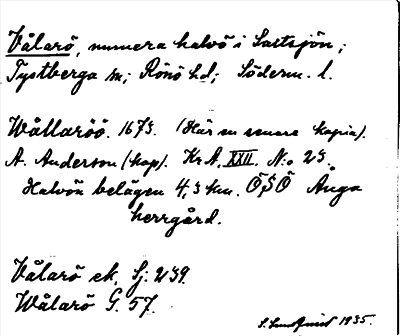 Vålarö, numera halvö i Saltsjön;
Tystberga sn; Rönö hd; Söderm. l.
Wållaröö. 1673. (Här en senare kopia).
A. Anderson (kop). Kr. A. XXII. N:o 23.
Halvön belägen 4,3 km. ÖSÖ Ånga
herrgård.
Vålarö ek. Sj: 239.
Wålarö G. 57.
1935.